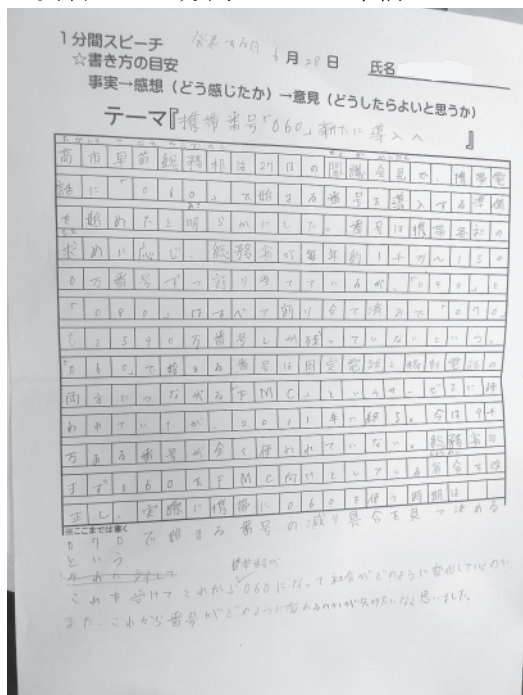 1分間スピーチ 発表する日 6月28日 氏名
☆書き方の目安
事実→感想(どう感じたか)→意見(どうしたらよいと思うか)
テーマ『携帯番号「060」新たに導入へ』
高市早苗総務相は27日の閣議会見で、携帯電
話に「060」で始まる番号を導入する準備
を始めたと明らかにした。番号は携帯各社の
求めに応じ、総務省が毎年約1千万〜150
0万番号ずつ割り当てているが、「090」と
「080」はすべて割り当て済みで「070」
も2590万番号しか残っていないという。
「060」で始まる番号は固定電話と携帯電話の
両方につながる「FMC」というサービスに使
われていたが、2011年に終了。今は9千
万ある番号が全く使われていない。総務省は
まず060をFMC向けとしている省令を改
正し、実際に携帯に060を使う時期は
※ここまでは書く
070で始まる番号の減り具合を見て決める
という
携帯番号が
これを受けてこれから060になって社会がどのように変化していくのか、
また、これから番号がどのように変わるのかが知りたいなと思いました。